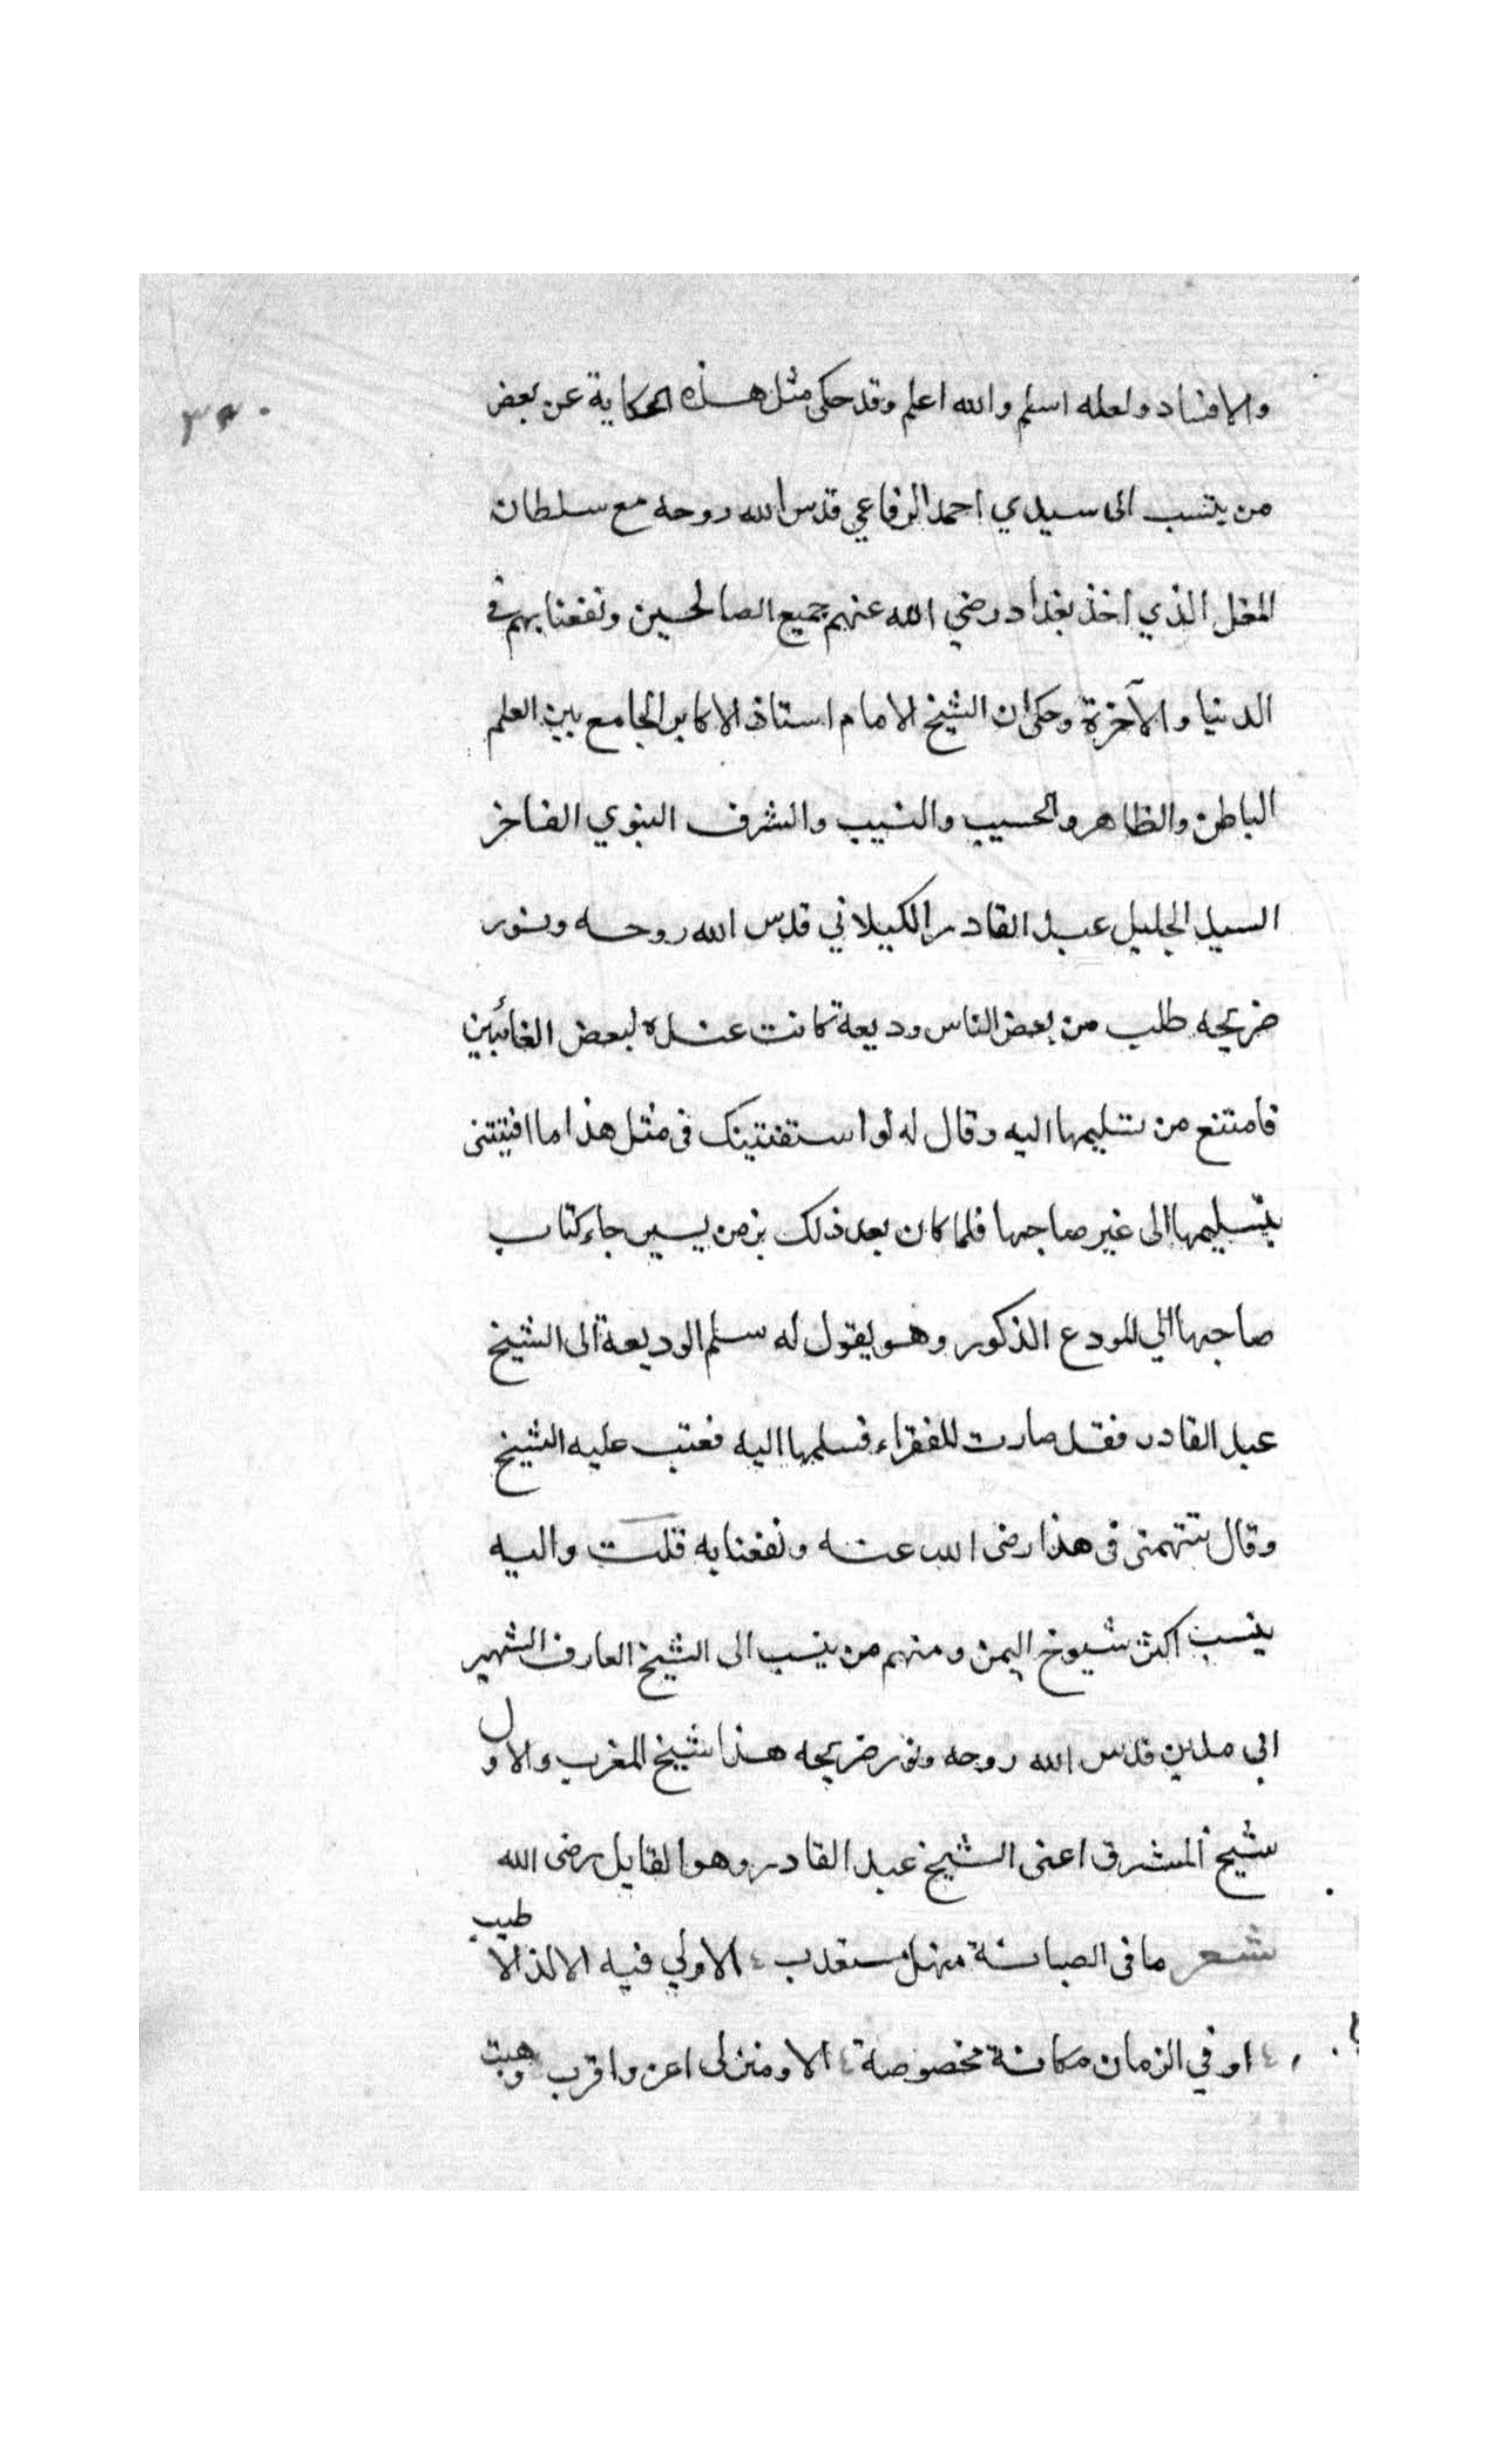 والافساد ولعله اسلم والله اعلم وقد حكى مثل هذه الحكاية عن بعض
من ينتسب الى سيدي احمد الرفاعي قدس الله روحه مع سلطان
المغل الذي اخذ بغداد رضي الله عنهم جميع الصالحين ونفعنا بهم في
الدنيا والآخرة وحكى ان الشيخ الامام استاذ الاكابر الجامع بين العلم
الباطن والظاهر والحسيب والنسيب والشرف النبوي الفاخر
السيد الجليل عبد القادر الكيلاني قدس الله روحه ونور
ضريحه طلب من بعض الناس وديعة كانت عنده لبعض الغائبين
فامتنع من تسليمها اليه وقال له لو استفتيتك فى مثل هذا ما افتيتنى
بتسليمها الى غير صاحبها فلما كان بعد ذلك بزمن يسير جاء كتاب
صاحبها الي المودع المذكور وهو يقول له سلم الوديعة الى الشيخ
عبد القادر فقد صارت للفقراء فسلمها اليه فعتب عليه الشيخ
وقال تتهمنى فى هذا رضى الله عنه ونفعنا به قلت واليه
ينسب اكثر شيوخ اليمن ومنهم من ينسب الى الشيخ العارف الشهير
ابي مدين قدس الله روحه ونور ضريحه هذا شيخ المغرب والاول
شيخ المشرق اعنى الشيخ عبد القادر وهو القايل رضى الله
شعر ما فى الصبابة منهل مستعذب الا ولي فيه الالذ الاطيب
او في الزمان مكانة مخصوصة الا ومنزلى اعز واقرب
وهبت